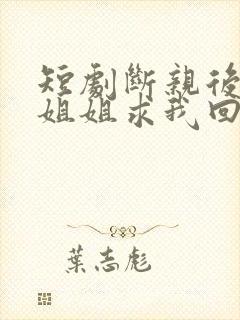 短劇斷親後
姐姐求我回
葉志彪